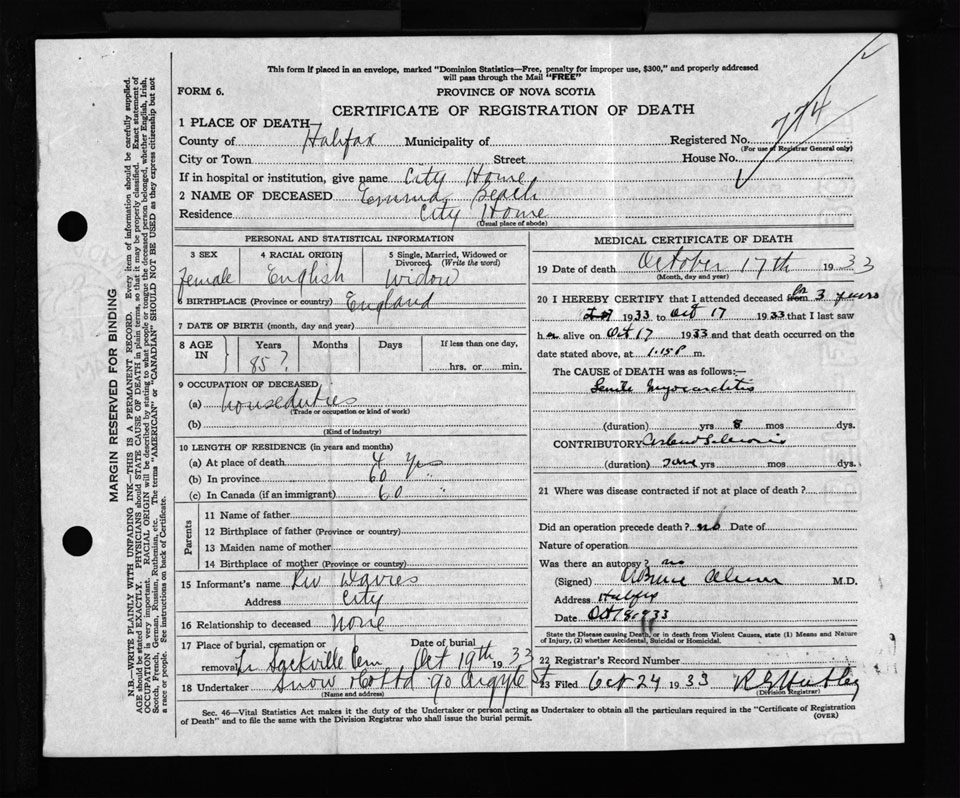 This form if placed in an envelope, marked "Dominion Statistics—Free, penalty for improper use, $300," and properly addressed
will pass through the Mail "FREE"
FORM 6.
PROVINCE OF NOVA SCOTIA
CERTIFICATE OF REGISTRATION OF DEATH
1 PLACE OF DEATH
County of Halifax Municipality of Registered No. 774
(For use of Registrar General only)
City or Town Street House No.
If in hospital or institution, give name City Home
2 NAME OF DECEASED Emma Beach
Residence City Home
(Usual place of abode)
PERSONAL AND STATISTICAL INFORMATION
3 SEX 4 RACIAL ORIGIN 5 Single, Married, Widowed or Divorced (Write the word)
Female English Widow
6 BIRTHPLACE (Province or country) England
7 DATE OF BIRTH (month, day and year)
8 AGE IN Years Months Days If less than one day,
85? hrs. or min.
9 OCCUPATION OF DECEASED
(a) houseduties
(Trade or occupation or kind of work)
(b)
(Kind of industry)
10 LENGTH OF RESIDENCE (in years and months)
(a) At place of death 4 Yrs
(b) In province 60 "
(c) In Canada (if an immigrant) 60 "
Parents
11 Name of father
12 Birthplace of father (Province or country)
13 Maiden name of mother
14 Birthplace of mother (Province or country)
15 Informant's name Rev Davies
Address City
16 Relationship to deceased None
17 Place of burial, cremation or removal Sackville Cem Date of burial Oct 19th 1933
18 Undertaker Snow 90 Argyle St
(Name and address)
MEDICAL CERTIFICATE OF DEATH
19 Date of death October 17th 1933
(Month, day and year)
20 I HEREBY CERTIFY that I attended deceased from for 3 years
1933 to Oct 17 1933 that I last saw
her alive on Oct 17 1933 and that death occurred on
date stated above, at 1.15 P m.
The CAUSE of DEATH was as follows:—
Senile Myocarditis
(duration) yrs 8 mos dys.
CONTRIBUTORY
(duration) yrs mos dys.
21 Where was disease contracted if not at place of death?
Did an operation precede death? no Date of
Nature of operation
Was there an autopsy? no
(Signed) M.D.
Address Halifax
Date Oct 18 1933
State the Disease causing Death, or in death from Violent Causes, state (1) Means and Nature
of Injury, (2) whether Accidental, Suicidal or Homicidal.
22 Registrar's Record Number
23 Filed Oct 24 1933
(Division Registrar)
Sec. 46—Vital Statistics Act makes it the duty of the Undertaker or person acting as Undertaker to obtain all the particulars required in the "Certificate of Registration
of Death" and to file the same with the Division Registrar who shall issue the burial permit.
(OVER)
MARGIN RESERVED FOR BINDING
N.B.—WRITE PLAINLY WITH UNFADING INK—THIS IS A PERMANENT RECORD. Every item of information should be carefully supplied.
AGE should be stated EXACTLY. PHYSICIANS should STATE CAUSE OF DEATH in plain terms, so that it may be properly classified. Exact statement of
OCCUPATION is very important. RACIAL ORIGIN will be described by stating to what people or tongue the deceased person belonged, whether English, Irish,
Scotch, French, German, Russian, Ruthenian, etc. The terms "AMERICAN" or "CANADIAN" SHOULD NOT BE USED as they express citizenship but not
a race or people. See instructions on back of Certificate.